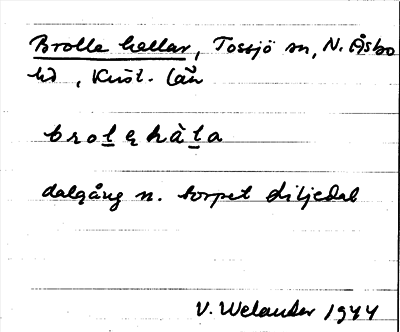 Brolle hallar, Tossjö sn, N. Åsbo
hd, Krist. län
brolęhàla
dalgång n. torpet Liljedal
V. Welander 1944